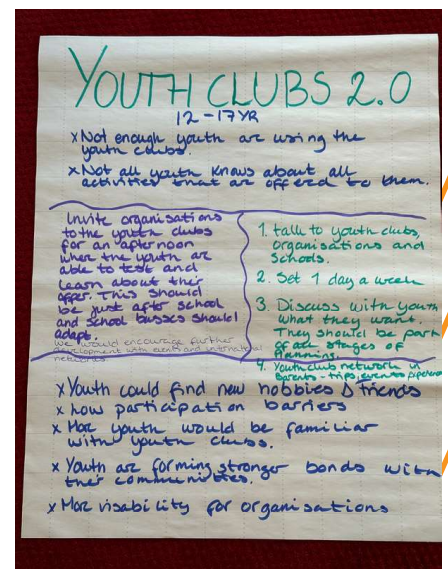 YOUTH CLUBS 2.0
12-17YR
x Not enough youth are using the
youth clubs.
x Not all youth knows about all
activities that are offered to them.
Invite organisations
to the youth clubs
for an afternoon
when the youth are
able to test and
learn about their
offer. This should
be just after school
and school busses should
adapt.
We would encourage further
development with events and international
networks.
1. talk to youth clubs,
organisations and
schools.
2. Set 1 day a week
3. Discuss with youth
what they want.
They should be part
of all stages of
planning.
4. Youthclub network in
Barents - trips, events
x Youth could find new hobbies & friends
x Low participation barriers
x More youth would be familiar
with youth clubs.
x Youth are forming stronger bonds with
their communities.
x More visability for organisations